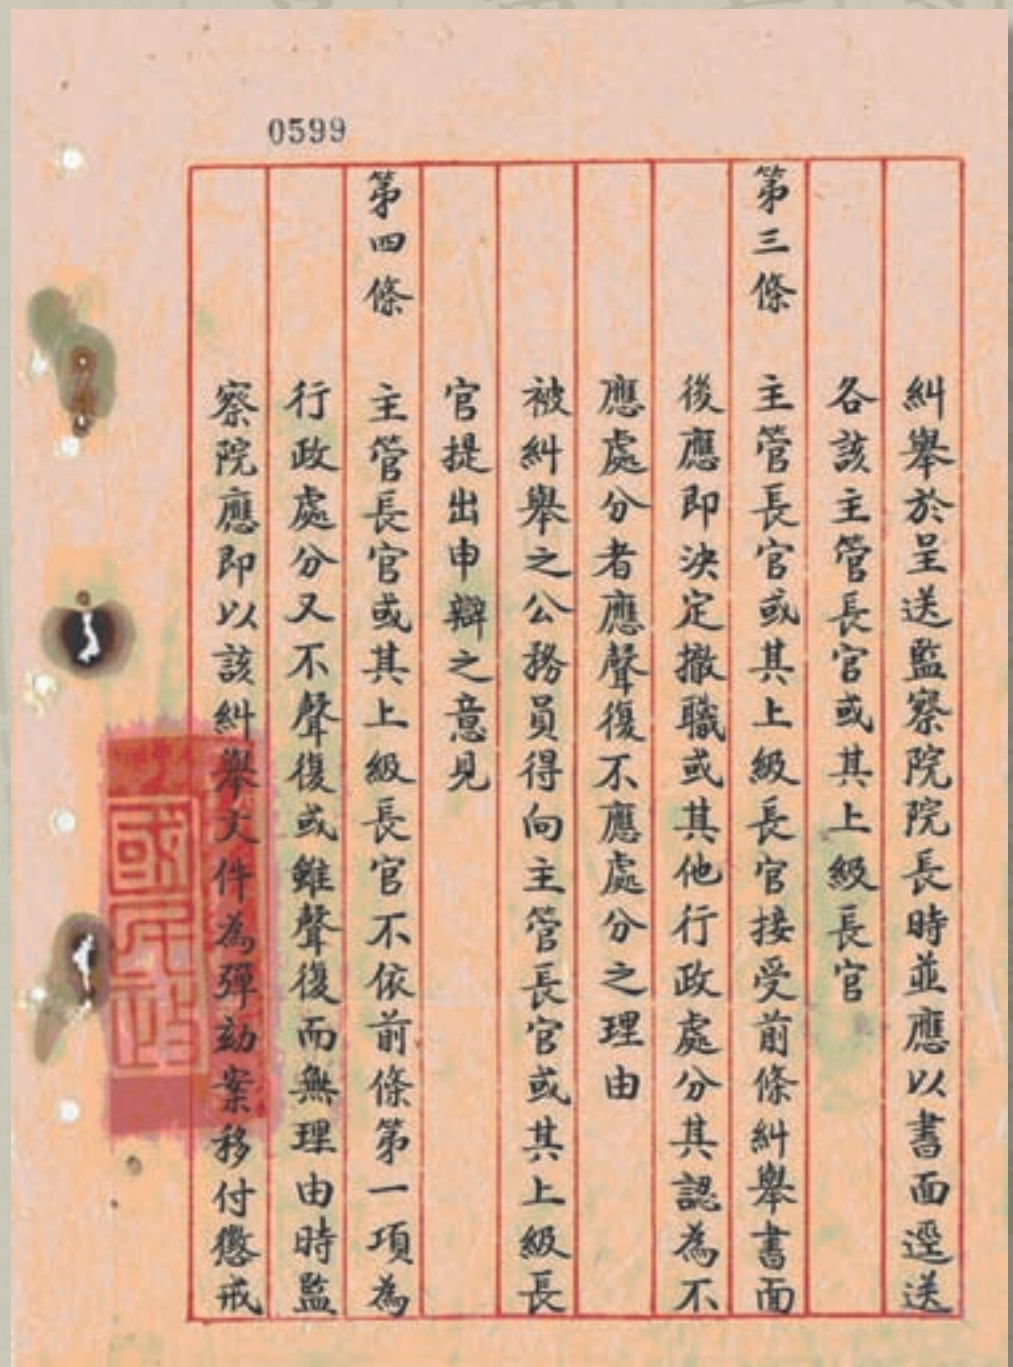 0599
糾舉於呈送監察院院長時並應以書面逕送
各該主管長官或其上級長官
第三條 主管長官或其上級長官接受前條糾舉書面
後應即決定撤職或其他行政處分其認為不
應處分者應聲復不應處分之理由
被糾舉之公務員得向主管長官或其上級長
官提出申辯之意見
第四條 主管長官或其上級長官不依前條第一項為
行政處分又不聲復或雖聲復而無理由時監
察院應即以該糾舉文件為彈劾案移付懲戒